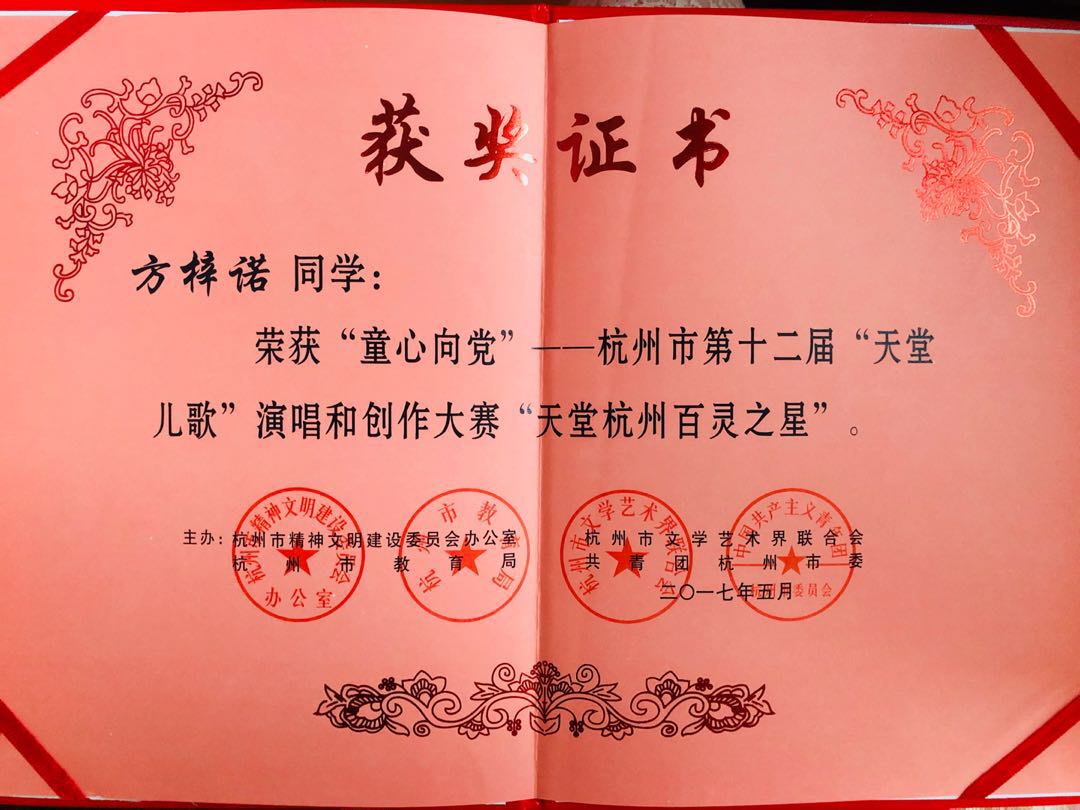 获奖证书
方梓诺 同学：
荣获“童心向党”——杭州市第十二届“天堂
儿歌”演唱和创作大赛“天堂杭州百灵之星”。
主办：杭州市精神文明建设委员会办公室
杭州市教育局
杭州市文学艺术界联合会
共青团杭州市委
二〇一七年五月
杭州市精神文明建设委员会
办公室
杭州市教育局
杭州市文学艺术界联合会
中国共产主义青年团
杭州市委员会